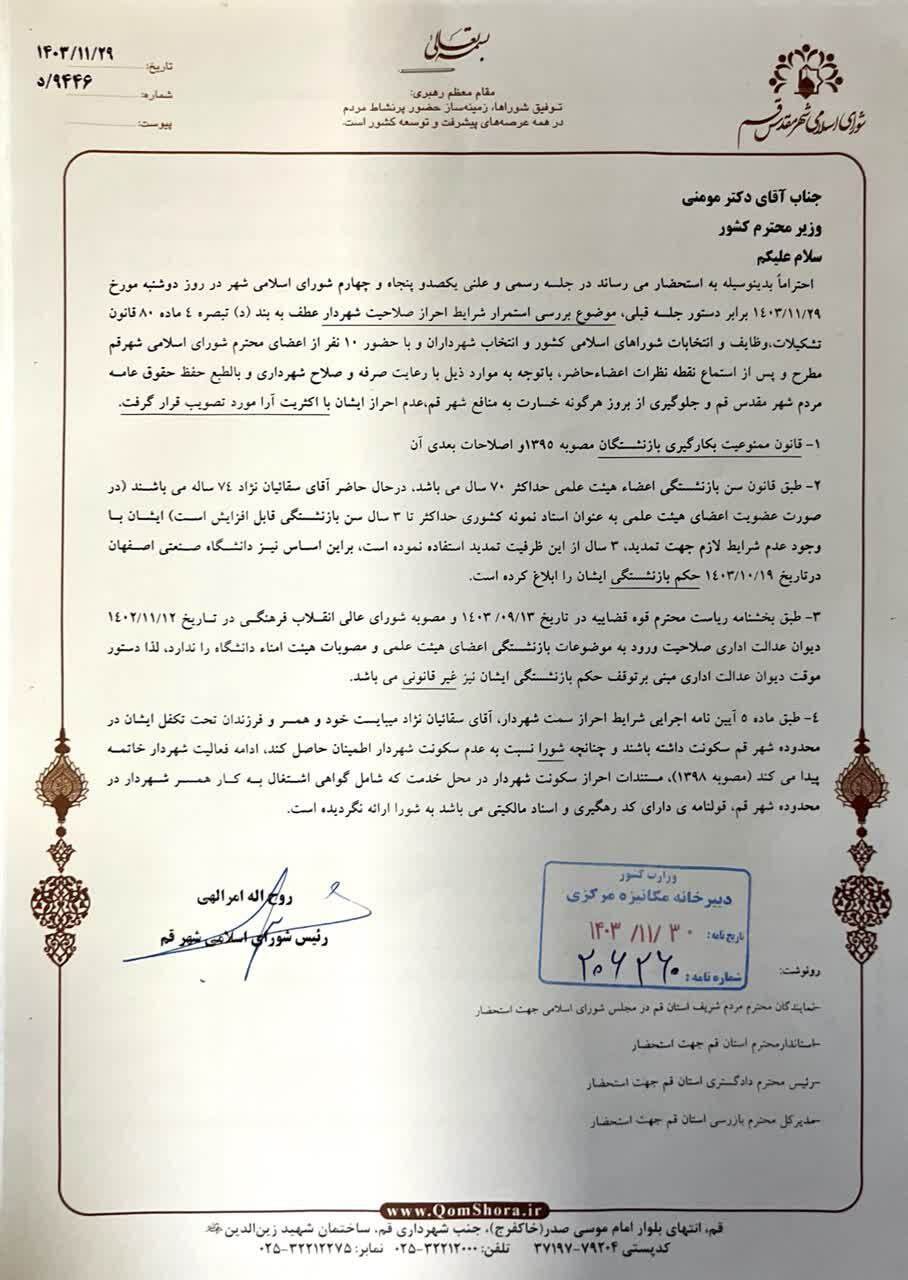 بسمه تعالی
مقام معظم رهبری:
توفیق شوراها، زمینه‌ساز حضور پرنشاط مردم
در همه عرصه‌های پیشرفت و توسعه کشور است.
شورای اسلامی شهر مقدس قم
تاریخ: ۱۴۰۳/۱۱/۲۹
شماره: ۹۴۴۶/د
پیوست:
جناب آقای دکتر مومنی
وزیر محترم کشور
سلام علیکم
احتراماً بدینوسیله به استحضار می رساند در جلسه رسمی و علنی یکصدو پنجاه و چهارم شورای اسلامی شهر در روز دوشنبه مورخ
۱۴۰۳/۱۱/۲۹ برابر دستور جلسه قبلی، موضوع بررسی استمرار شرایط احراز صلاحیت شهردار عطف به بند (د) تبصره ۴ ماده ۸۰ قانون
تشکیلات،وظایف و انتخابات شوراهای اسلامی کشور و انتخاب شهرداران و با حضور ۱۰ نفر از اعضای محترم شورای اسلامی شهرقم
مطرح و پس از استماع نقطه نظرات اعضاءحاضر، باتوجه به موارد ذیل با رعایت صرفه و صلاح شهرداری و بالطبع حفظ حقوق عامه
مردم شهر مقدس قم و جلوگیری از بروز هرگونه خسارت به منافع شهر قم،عدم احراز ایشان با اکثریت آرا مورد تصویب قرار گرفت.
۱- قانون ممنوعیت بکارگیری بازنشستگان مصوبه ۱۳۹۵و اصلاحات بعدی آن
۲- طبق قانون سن بازنشستگی اعضاء هیئت علمی حداکثر ۷۰ سال می باشد، درحال حاضر آقای سقائیان نژاد ۷۴ ساله می باشند (در
صورت عضویت اعضای هیئت علمی به عنوان استاد نمونه کشوری حداکثر تا ۳ سال سن بازنشستگی قابل افزایش است) ایشان با
وجود عدم شرایط لازم جهت تمدید، ۳ سال از این ظرفیت تمدید استفاده نموده است، براین اساس نیز دانشگاه صنعتی اصفهان
درتاریخ ۱۴۰۳/۱۰/۱۹ حکم بازنشستگی ایشان را ابلاغ کرده است.
۳- طبق بخشنامه ریاست محترم قوه قضاییه در تاریخ ۱۴۰۳/۰۹/۱۳ و مصوبه شورای عالی انقلاب فرهنگی در تاریخ ۱۴۰۲/۱۱/۱۲
دیوان عدالت اداری صلاحیت ورود به موضوعات بازنشستگی اعضای هیئت علمی و مصوبات هیئت امناء دانشگاه را ندارد، لذا دستور
موقت دیوان عدالت اداری مبنی برتوقف حکم بازنشستگی ایشان نیز غیر قانونی می باشد.
۴- طبق ماده ۵ آیین نامه اجرایی شرایط احراز سمت شهردار، آقای سقائیان نژاد میبایست خود و همسر و فرزندان تحت تکفل ایشان در
محدوده شهر قم سکونت داشته باشند و چنانچه شورا نسبت به عدم سکونت شهردار اطمینان حاصل کند، ادامه فعالیت شهردار خاتمه
پیدا می کند (مصوبه ۱۳۹۸)، مستندات احراز سکونت شهردار در محل خدمت که شامل گواهی اشتغال به کار همسر شهردار در
محدوده شهر قم، قولنامه ی دارای کد رهگیری و اسناد مالکیتی می باشد به شورا ارائه نگردیده است.
روح اله امرالهی
رئیس شورای اسلامی شهر قم
وزارت کشور
دبیرخانه مکانیزه مرکزی
تاریخ نامه: ۱۴۰۳/۱۱/۳۰
شماره نامه: ۲۰۶۲۶۰
رونوشت:
-نمایندگان محترم مردم شریف استان قم در مجلس شورای اسلامی جهت استحضار
-استاندارمحترم استان قم جهت استحضار
-رئیس محترم دادگستری استان قم جهت استحضار
-مدیرکل محترم بازرسی استان قم جهت استحضار
www.QomShora.ir
قم، انتهای بلوار امام موسی صدر(خاکفرج)، جنب شهرداری قم، ساختمان شهید زین‌الدین
کدپستی ۷۹۲۰۴-۳۷۱۹۷ تلفن: ۳۲۲۱۲۰۰۰-۰۲۵ نمابر: ۳۲۲۱۲۲۷۵-۰۲۵